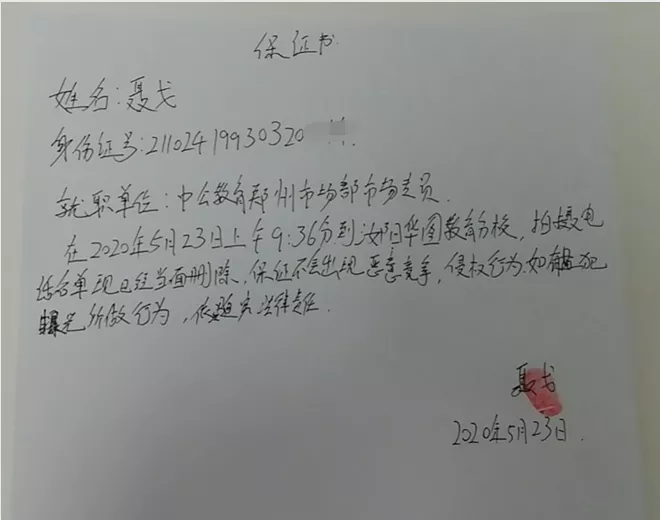 保证书
姓名:聂戈
身份证号:211024 19930320
就职单位:中公教育郑州市场部市场专员.
在2020年5月23日上午9:36分到汝阳华图教育分校,拍摄电
话名单现已经当面删除,保证不会出现恶意竞争,侵权行为.如有
所做行为,依追究法律责任.
聂戈
2020年5月23日.